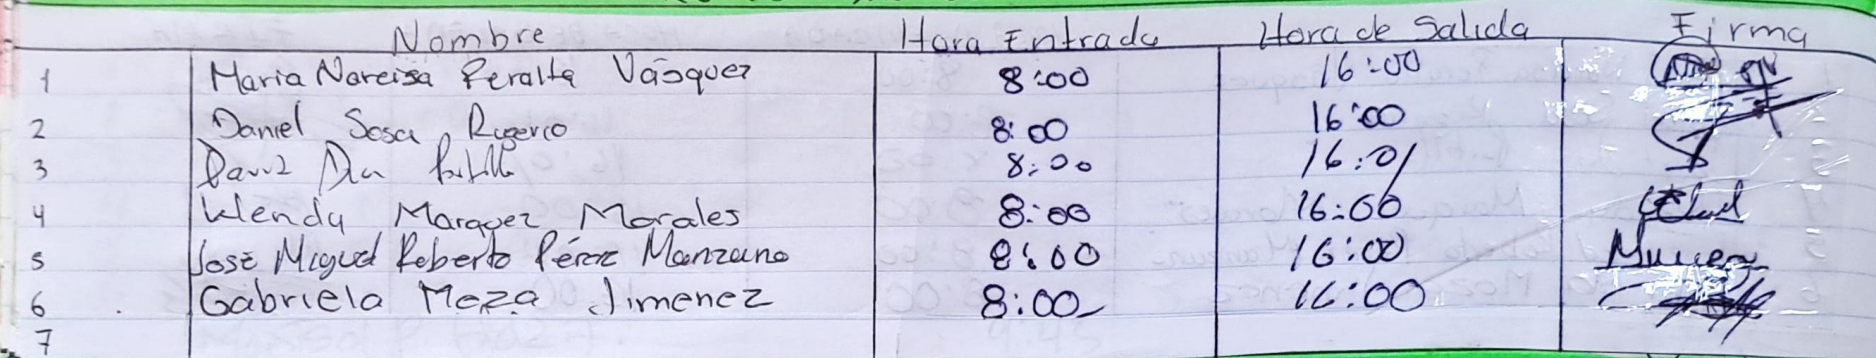 Nombre Hora Entrada Hora de Salida Firma
1 Maria Nareisa Peralta Vásquez 8:00 16:00
2 Daniel Sosa Rugerio 8:00 16:00
3 8:00 16:01
4 Wendy Marquez Morales 8:00 16:00
5 José Miguel Roberto Pérez Manzano 8:00 16:00
6 Gabriela Meza Jimenez 8:00 16:00
7